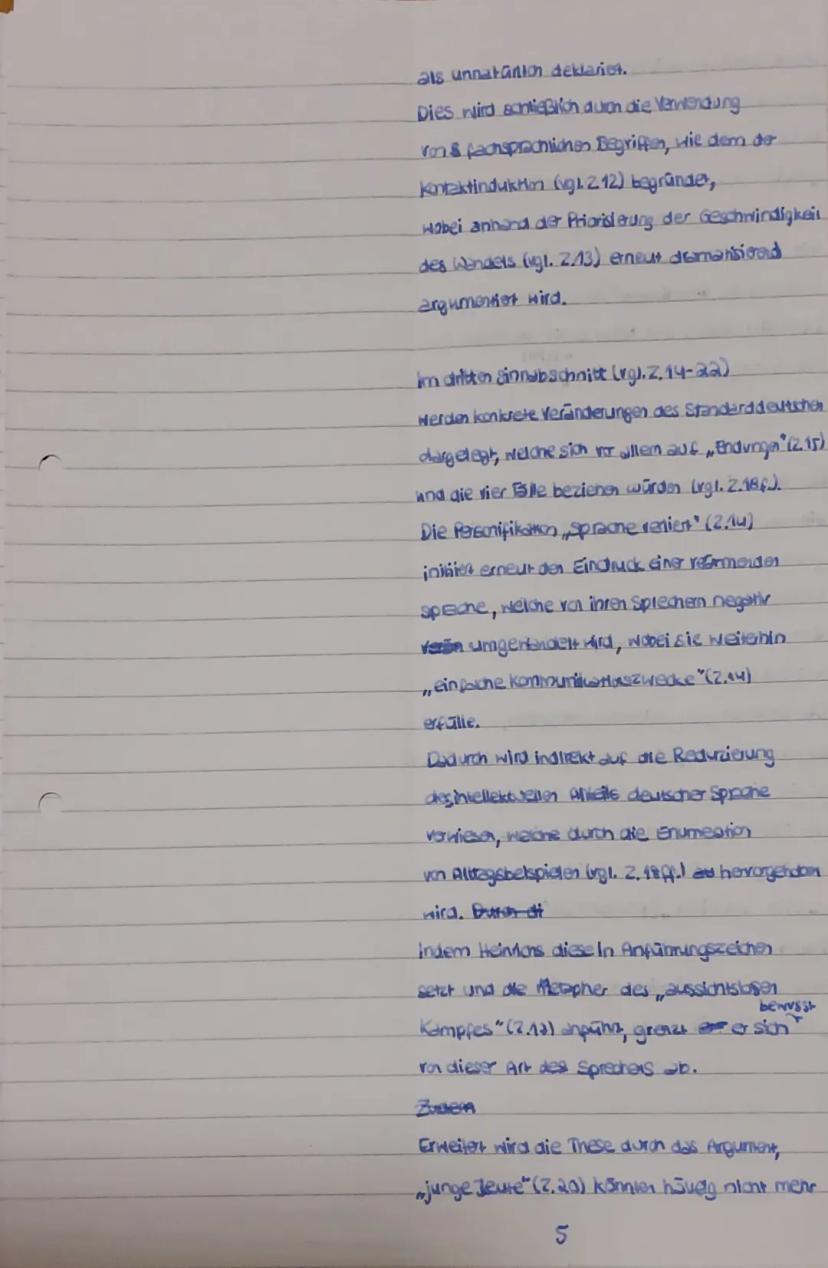 als unnatürlich deklariert.
Dies wird schließlich durch die Verwendung
von fachsprachlichen Begriffen, wie dem der
Kontaktinduktion (vgl. Z.12) begründet,
wobei anhand der Priorisierung der Geschwindigkeit
des Wandels (vgl. Z.13) erneut dramatisierend
argumentiert wird.
Im dritten Sinnabschnitt (vgl. Z. 14-22)
werden konkrete Veränderungen des Standarddeutschen
dargelegt, welche sich vor allem auf „Endungen" (Z.15)
und die vier Fälle beziehen würden (vgl. Z.18f.).
Die Personifikation „Sprache verliert" (Z.14)
initiiert erneut den Eindruck einer
Sprache, welche von ihren Sprechern negativ
umgewandelt wird, wobei sie weiterhin
„einfache Kommunikationszwecke" (Z.14)
erfülle.
Dadurch wird indirekt auf die Reduzierung
des intellektuellen Anteils deutscher Sprache
verwiesen, welche durch die Enumeration
von Alltagsbeispielen (vgl. Z. 18ff.) hervorgehoben
wird. Durch di
Indem Heinrichs diese in Anführungszeichen
setzt und die Metapher des „aussichtslosen
Kampfes" (Z.17) anführt, grenzt er sich bewusst
von dieser Art des Sprechens ab.
Zudem
Erweitert wird die These durch das Argument,
„junge Leute" (Z.20) könnten häufig nicht mehr
5